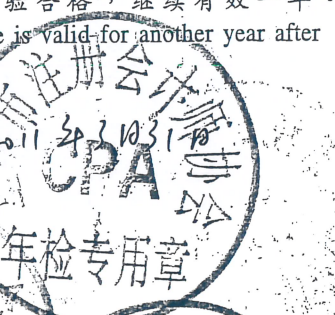 验合格，继续有效一年
is valid for another year after
市注册会计师协会
2011年3月31日
CPA
年检专用章